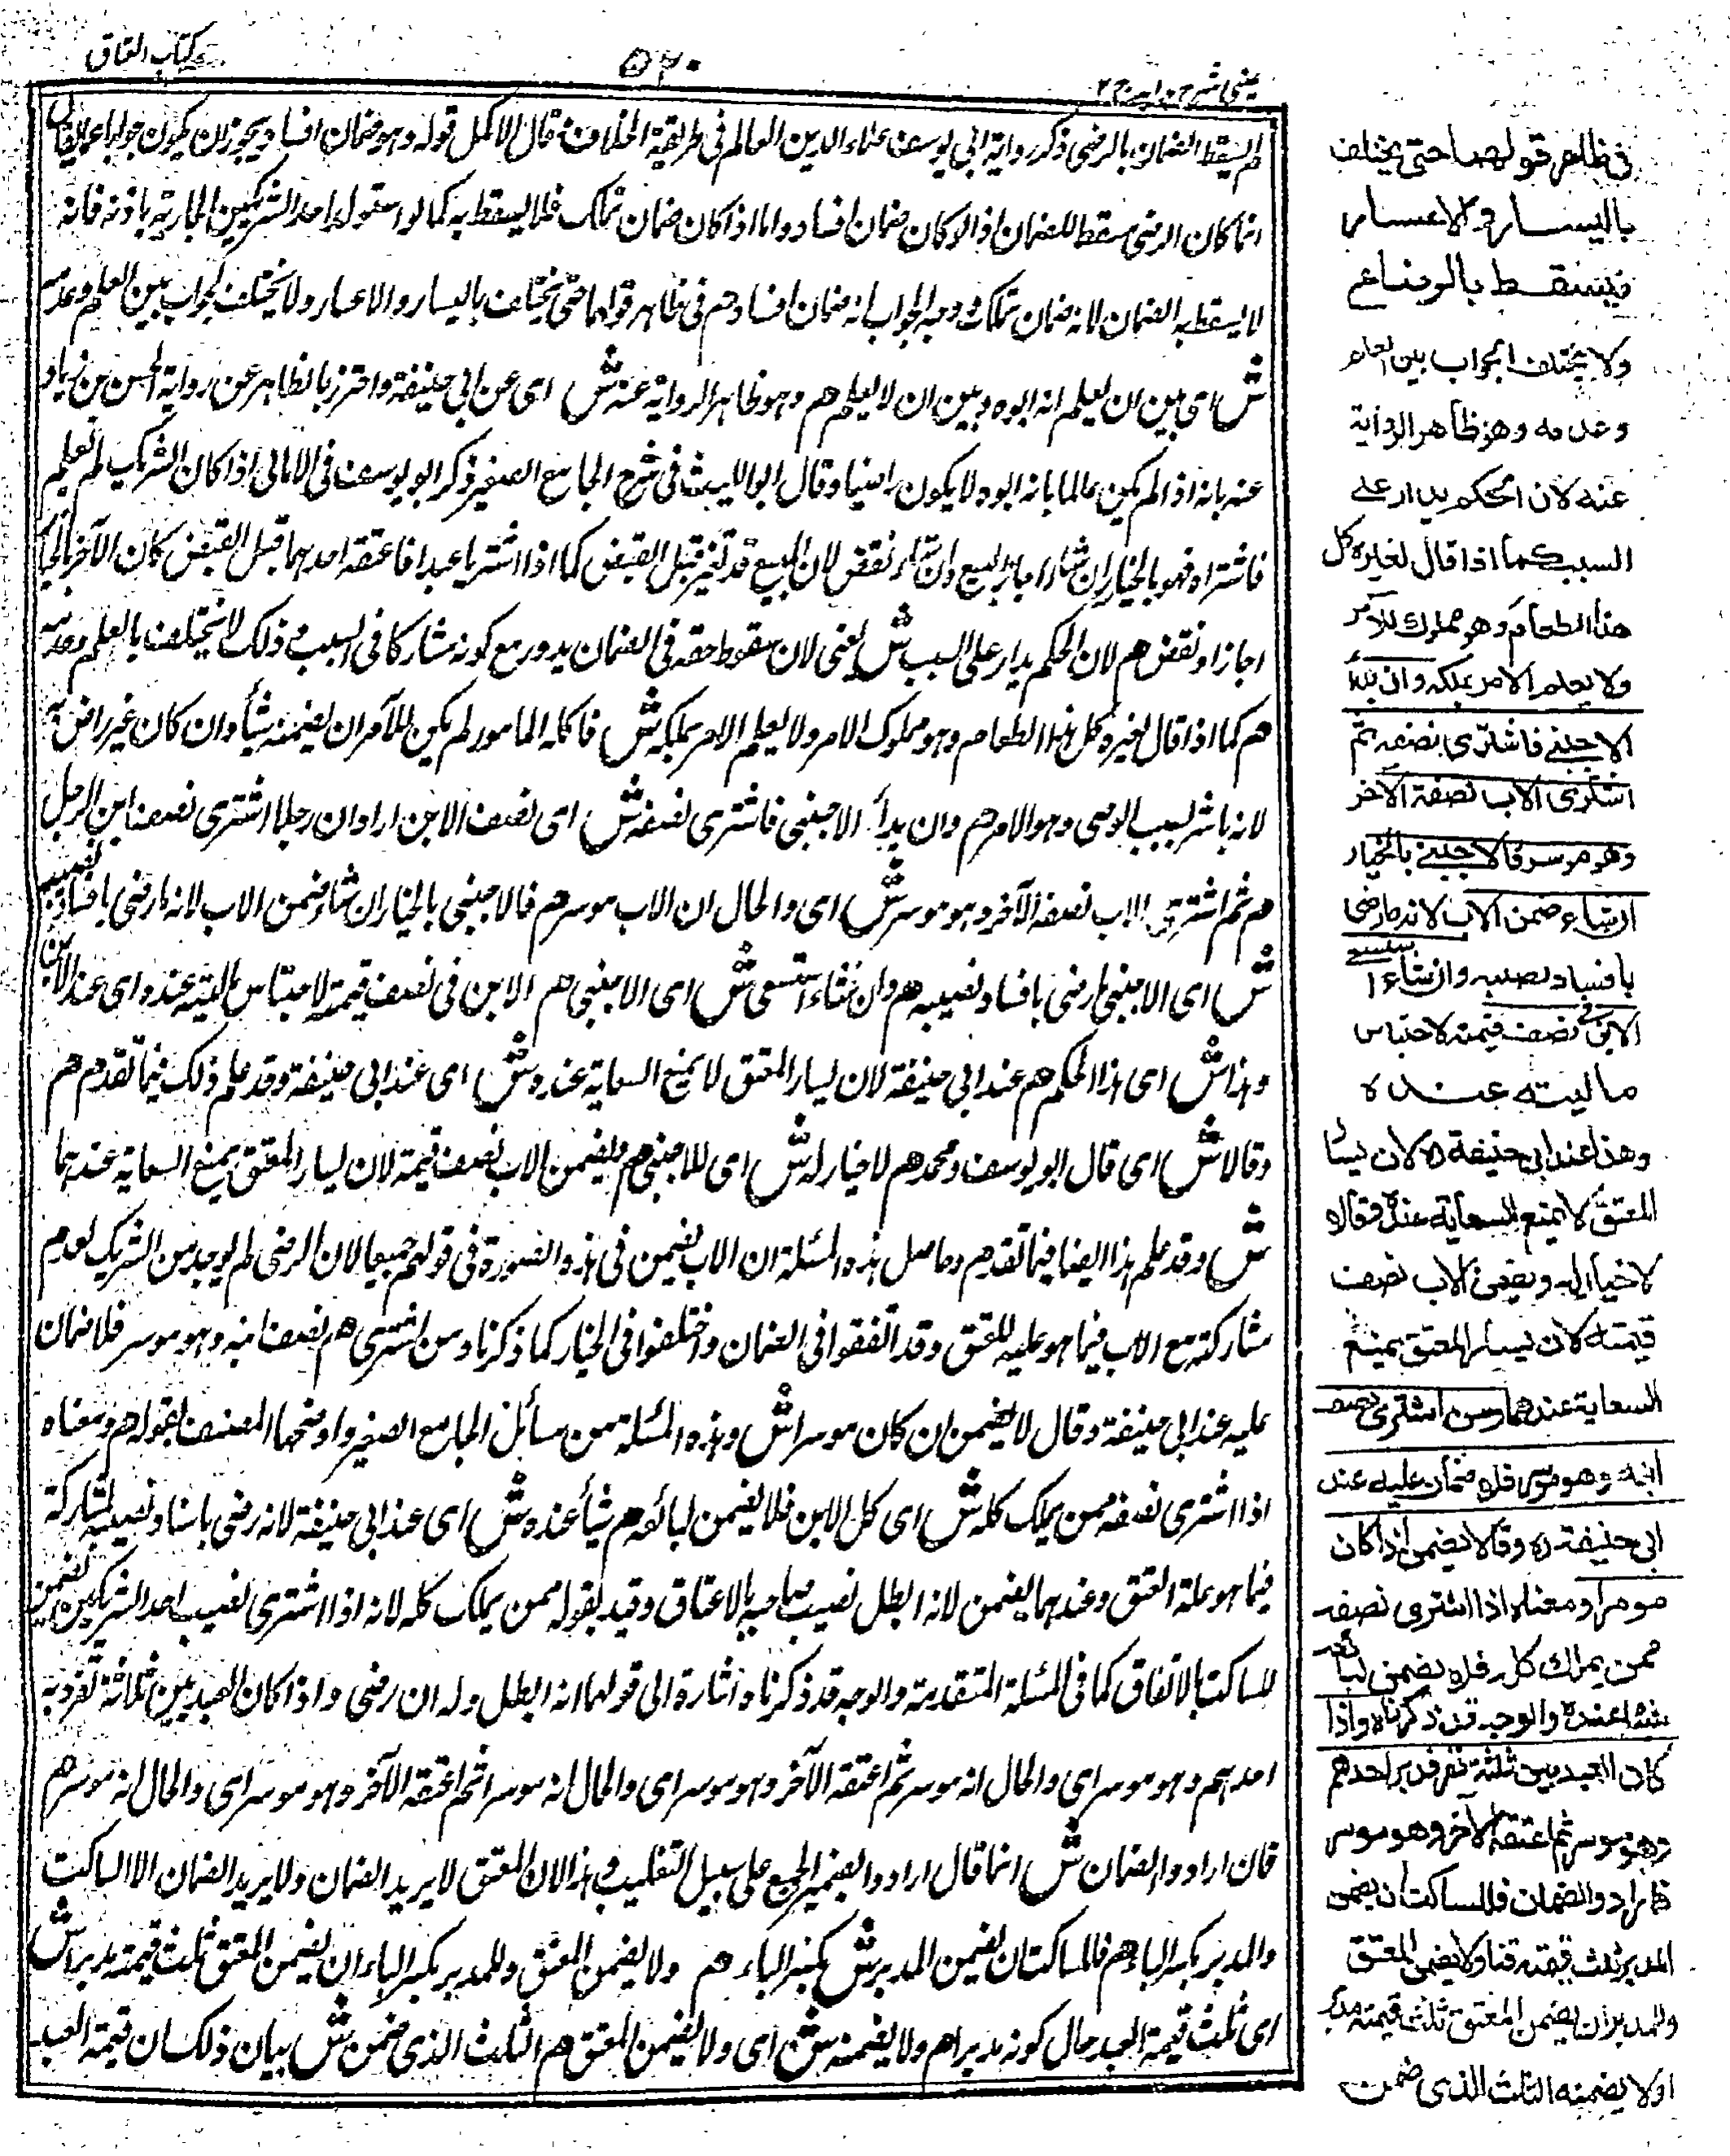 عينى شرح هدايه ج ٢
٥٢٠
كتاب العتاق
لم يسقط الضمان بالرضى ذكر رواية ابى يوسف علاء الدين العالم فى طريقة الخلاف قال الاكمل قوله وهو ضمان افساد ويجوز ان يكون جوابا عما يقال
انما كان الرضى مسقطا للضمان اذا كان ضمان افساد واما اذا كان ضمان تملك فلا يسقط به كما لو استولد احد الشريكين الجارية باذنه فانه
لا يسقط به الضمان لانه ضمان تملك ووجه الجواب انه ضمان افساد هم فى ظاهر قولهما حتى يختلف باليسار والاعسار ولا يختلف الجواب بين العلم وعدمه
ش اى بين ان يعلم انه ابوه وبين ان لا يعلم هم وهو ظاهر الرواية عنه ش اى عن ابى حنيفة واحترز بالظاهر عن رواية الحسن بن زياد
عنه بانه اذا لم يكن عالما بانه ابوه لا يكون راضيا وقال ابو الليث فى شرح الجامع الصغير ذكر ابو يوسف فى الامالى اذا كان الشريك لم يعلم
فاشتراه فهو بالخيار ان شاء اجاز البيع وان شاء نقض لان المبيع قد تغير قبل القبض كما اذا اشتريا عبدا فاعتقه احدهما قبل القبض كان الآخر بالخيار
اجاز او نقض هم لان الحكم يدار على السبب ش يعنى لان سقوط حقه فى الضمان يدور مع كونه مشاركا فى السبب وذلك لا يختلف بالعلم وعدمه
هم كما اذا قال لغيره كل هذا الطعام وهو مملوك الامر ولا يعلم الامر بملكه ش فاكله المامور لم يكن للآمر ان يضمنه شيأ وان كان غير راض به
لانه باشر لسبب الرضى وهو الامر هم وان بدأ الاجنبى فاشترى نصفه ش اى نصف الابن اراد ان رجلا اشترى نصف ابن الرجل
هم ثم اشترى الاب نصفه الآخر وهو موسر ش اى والحال ان الاب موسر هم فالاجنبى بالخيار ان شاء ضمن الاب لانه ما رضى بافساد نصيبه
ش اى الاجنبى ما رضى بافساد نصيبه هم وان شاء استسعى ش اى الاجنبى هم الابن فى نصف قيمته لاحتباس ماليته عنده اى عند الابن
وهذا ش اى هذا الحكم هم عند ابى حنيفة لان يسار المعتق لا يمنع السعاية عنده ش اى عند ابى حنيفة وقد علم ذلك فيما تقدم هم
وقالا ش اى قال ابو يوسف ومحمد هم لا خيار له ش اى للاجنبى هم ويضمن الاب نصف قيمته لان يسار المعتق يمنع السعاية عندهما
ش وقد علم هذا ايضا فيما تقدم وحاصل هذه المسئلة ان الاب يضمن فى هذه الصورة فى قولهم جميعا لان الرضى لم يوجد من الشريك لعدم
مشاركته مع الاب فيما هو علية للعتق وقد اتفقوا فى الضمان واختلفوا فى الخيار كما ذكرنا ومن اشترى هم نصف ابنه وهو موسر فلا ضمان
عليه عند ابى حنيفة وقال لا يضمن ان كان موسرا ش وهذه المسئلة من مسائل الجامع الصغير واوضحها المصنف بقوله هم ومعناه
اذا اشترى نصفه ممن يملك كله ش اى كل الابن فلا يضمن لبائعه هم شيأ عنده ش اى عند ابى حنيفة لانه رضى بافساد نصيبه لمشاركته
فيما هو علة العتق وعندهما يضمن لانه ابطل نصيب صاحبه بالاعتاق وقيد بقوله ممن يملك كله لانه اذا اشترى نصيب احد الشريكين يضمن
للساكت بالاتفاق كما فى المسئلة المتقدمة والوجه قد ذكرناه اشارة الى قولهما انه ابطل وله ان رضى واذا كان العبد بين ثلاثة نفر دبره
احدهم وهو موسر اى والحال انه موسر ثم اعتقه الآخر وهو موسر اى والحال انه موسر ثم اعتقه الآخر وهو موسر اى والحال انه موسر هم
فان ارادوا الضمان ش انما قال ارادوا بضمير الجمع على سبيل التغليب وهذا لان المعتق لا يريد الضمان ولا يريد الضمان الا الساكت
والمدبر بكسر الباء هم فللساكت ان يضمن المدبر ش بكسر الباء هم ولا يضمن المعتق وللمدبر بكسر الباء ان يضمن المعتق ثلث قيمته مدبرا ش
اى ثلث قيمة العبد حال كونه مدبرا هم ولا يضمنه ش اى ولا يضمن المعتق هم الثلث الذى ضمن ش بيان ذلك ان قيمة العبد
فى ظاهر قولهما حتى يختلف
باليسار والاعسار
فيسقط بالرضاء
ولا يختلف الجواب بين العلم
وعدمه وهو ظاهر الرواية
عنه لان الحكم يدار على
السبب كما اذا قال لغيره كل
هذا الطعام وهو مملوك للآمر
ولا يعلم الآمر بملكه وان بدأ
الاجنبى فاشترى نصفه ثم
اشترى الاب نصفه الآخر
وهو موسر فالاجنبى بالخيار
ان شاء ضمن الاب لانه ما رضى
بافساد نصيبه وان شاء استسعى
الابن فى نصف قيمته لاحتباس
ماليته عنده
وهذا عند ابى حنيفة ره لان يسار
المعتق لا يمنع السعاية عنده وقالا
لا خيار له ويضمن الاب نصف
قيمته لان يسار المعتق يمنع
السعاية عندهما ومن اشترى نصف
ابنه وهو موسر فلا ضمان عليه عند
ابى حنيفة ره وقالا يضمن اذا كان
موسرا ومعناه اذا اشترى نصفه
ممن يملك كله فلا يضمن لبائعه
شيئا عنده والوجه قد ذكرناه واذا
كان العبد بين ثلثة نفر فدبر احدهم
وهو موسر ثم اعتقه الآخر وهو موسر
فارادوا الضمان فللساكت ان يضمن
المدبر ثلث قيمته قنا ولا يضمن المعتق
وللمدبر ان يضمن المعتق ثلث قيمته مدبرا
ولا يضمنه الثلث الذى ضمن